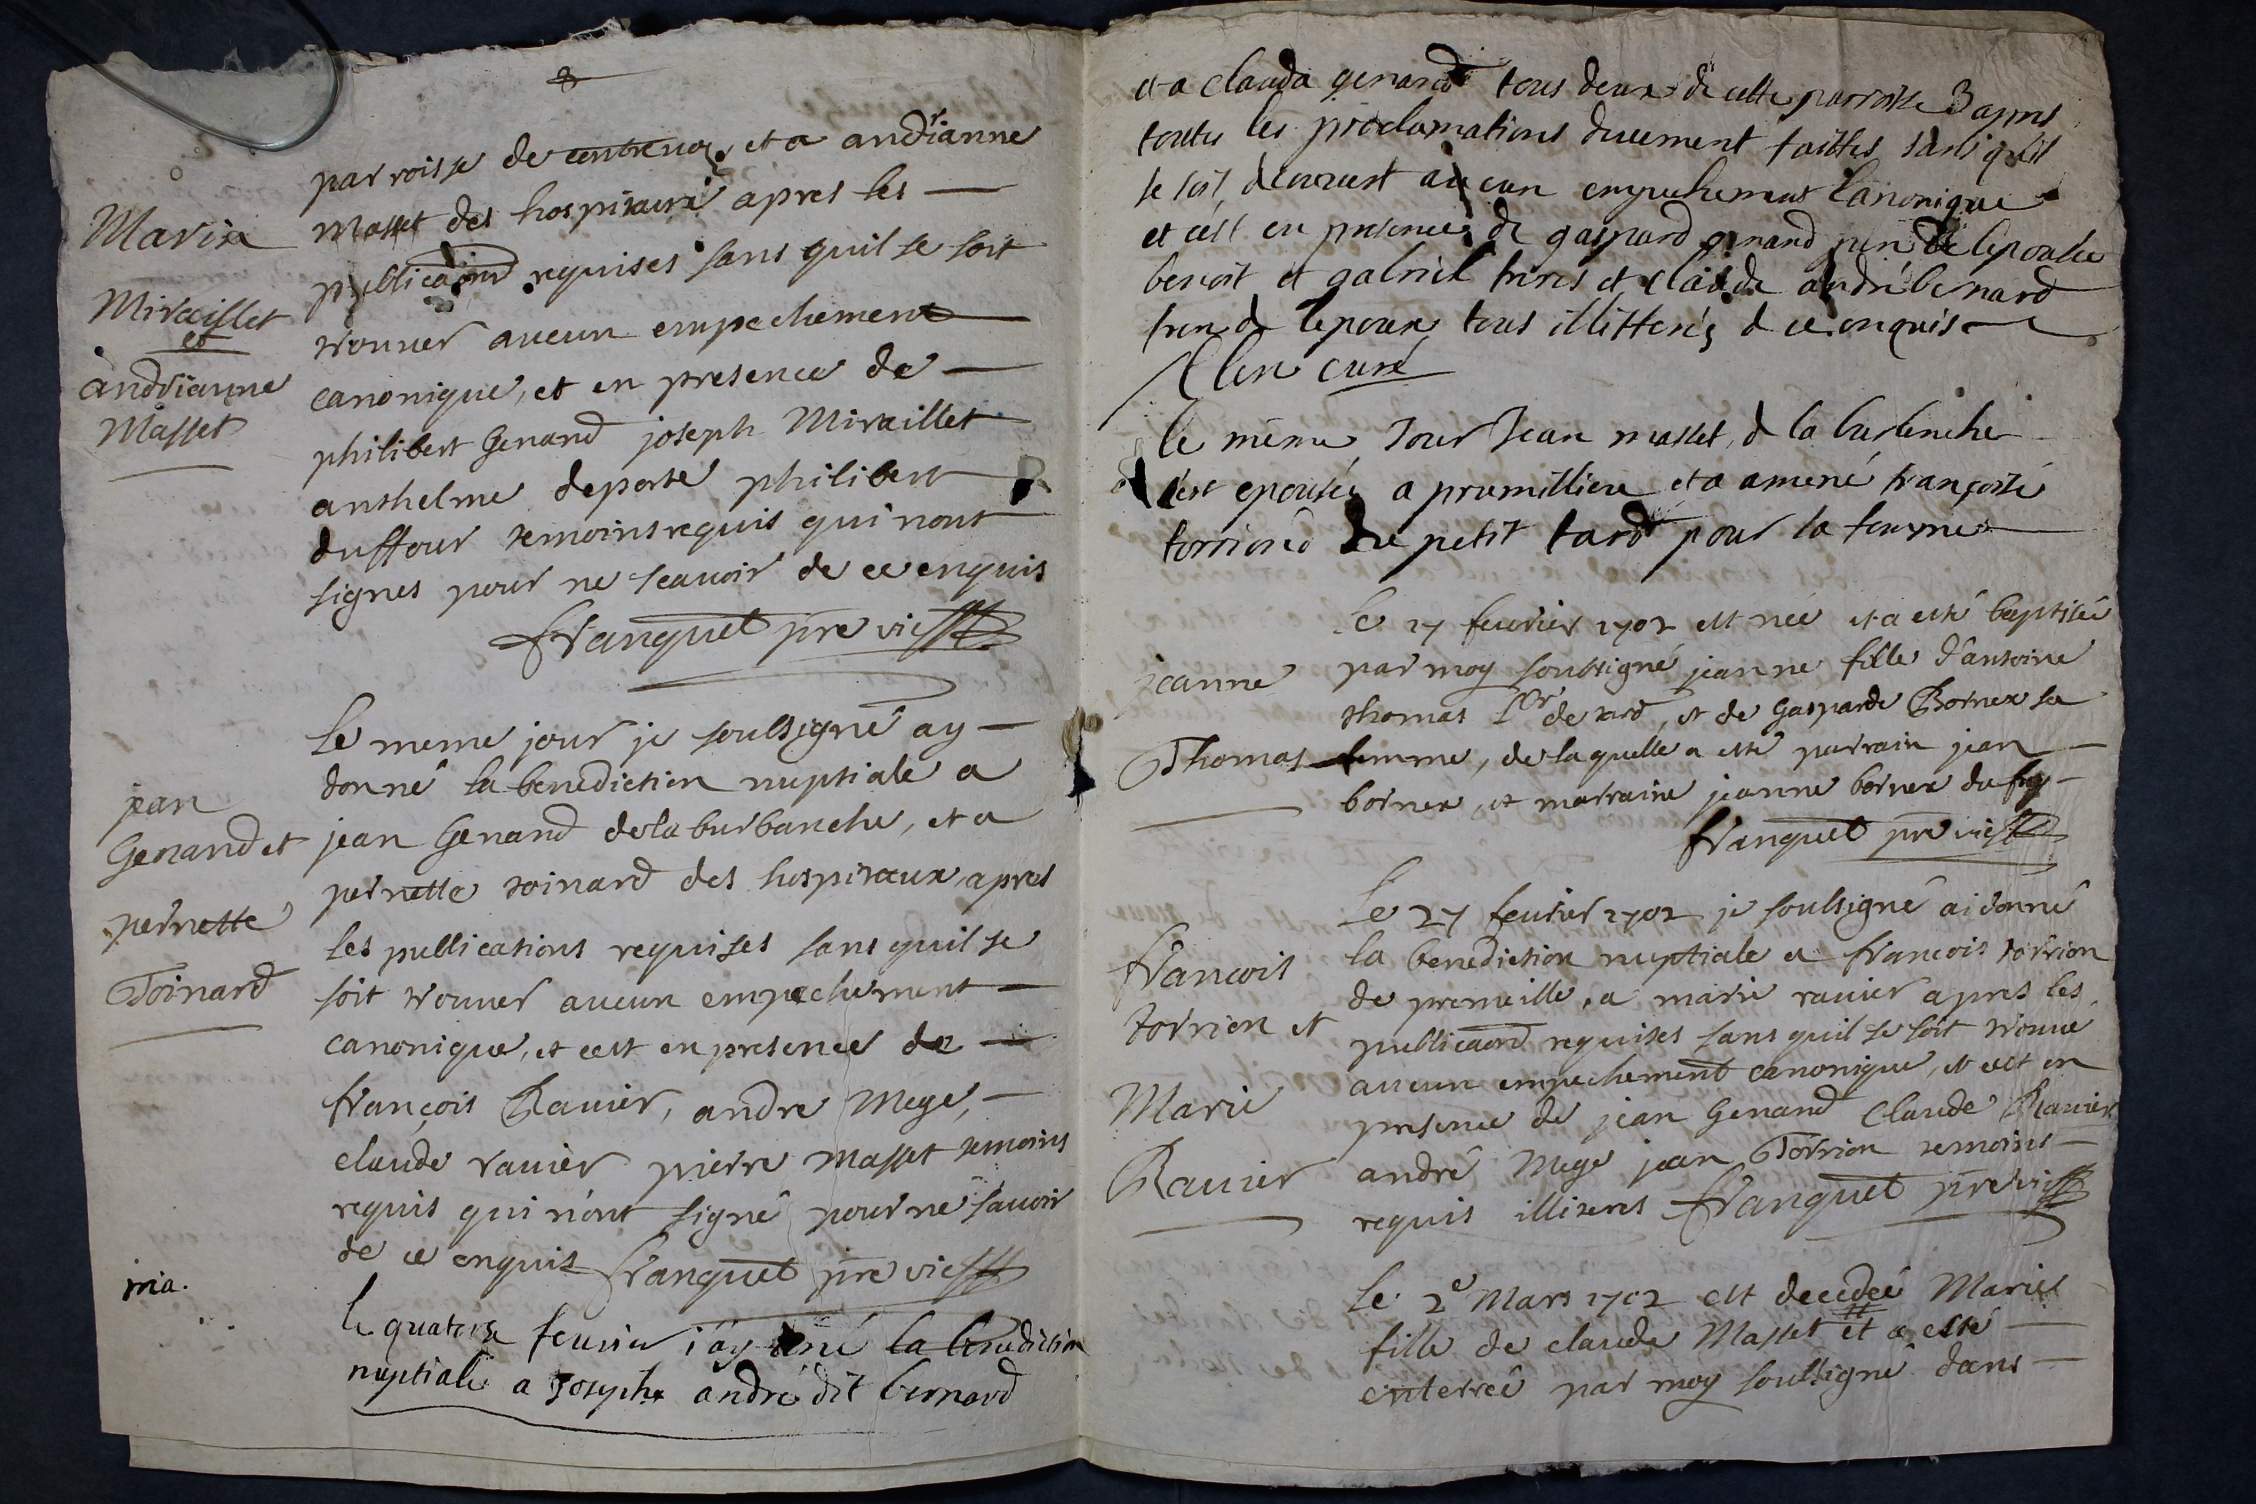 8
parroisse de contrevoz, et a andrianne
Masset des hospitaux apres les
publicaōns requises sans quil se soit
trouver aucun empechement
canonique, et en presence de
philibert Genand joseph Miraillet
anthelme deporte philibert
duffour temoins requis qui nont
signes pour ne scavoir de ce enquis
franquet pre vic
Maria
Miraillet
et
andrianne
Masset
Le meme jour je soubsigné ay
donné la benediction nuptiale a
jean Genand de la burbanche, et a
pernette toinard des hospitaux, apres
les publications requises sans quil se
soit trouver aucun empechement
canonique, et cest en presence de
françois Ravier, andre Mege,
claude ravier pierre Masset temoins
requis qui n'ont signé pour ne savoir
de ce enquis franquet pre vic
jean
Genand et
pernette
Toinard
ma.
le quatorze feurier i'ay doné la benediction
nuptiale a Joseph andré dit bernard
et a Clauda genand tous deux de cette parroisse apres
toutes les proclamations duement faittes sans qu'il
se soit decouvert aucun empechement Canonique
et c'est en presence de gaspard genand pere de l'epouse
benoit et gabriel freres et Claude andré bernard
frere de l'epoux tous illitterés de ce enquis
curé
le même Jour Jean masset, de la burbenche
s'est epousée a prumilliere et a amené françoise
torrion du petit tard pour sa femme
Le 17 feurier 1702 est née et a esté baptisée
par moy soubsigné jeanne fille d'antoine
thomas de tard, et de Gasparde Bornex sa
femme, de laquelle a esté parrain jean
bornex, et marraine jeanne bornex du
franquet pre vic
jeanne
Thomas
Le 27 feurier 1702 je soubsigné ai donné
la benediction nuptiale a francois torrion
de premeille, a marie ravier apres les
publicaōns requises sans quil se soit trouve
aucun empechement canonique, et cest en
presence de jean Genand Claude Ravier
andré Mege jean Torrion temoins
requis illiteres franquet pre vic
francois
torrion et
Marie
Ravier
Le 2e Mars 1702 est decedée Marie
fille de claude Masset et a esté
enterreé par moy soubsigné dans